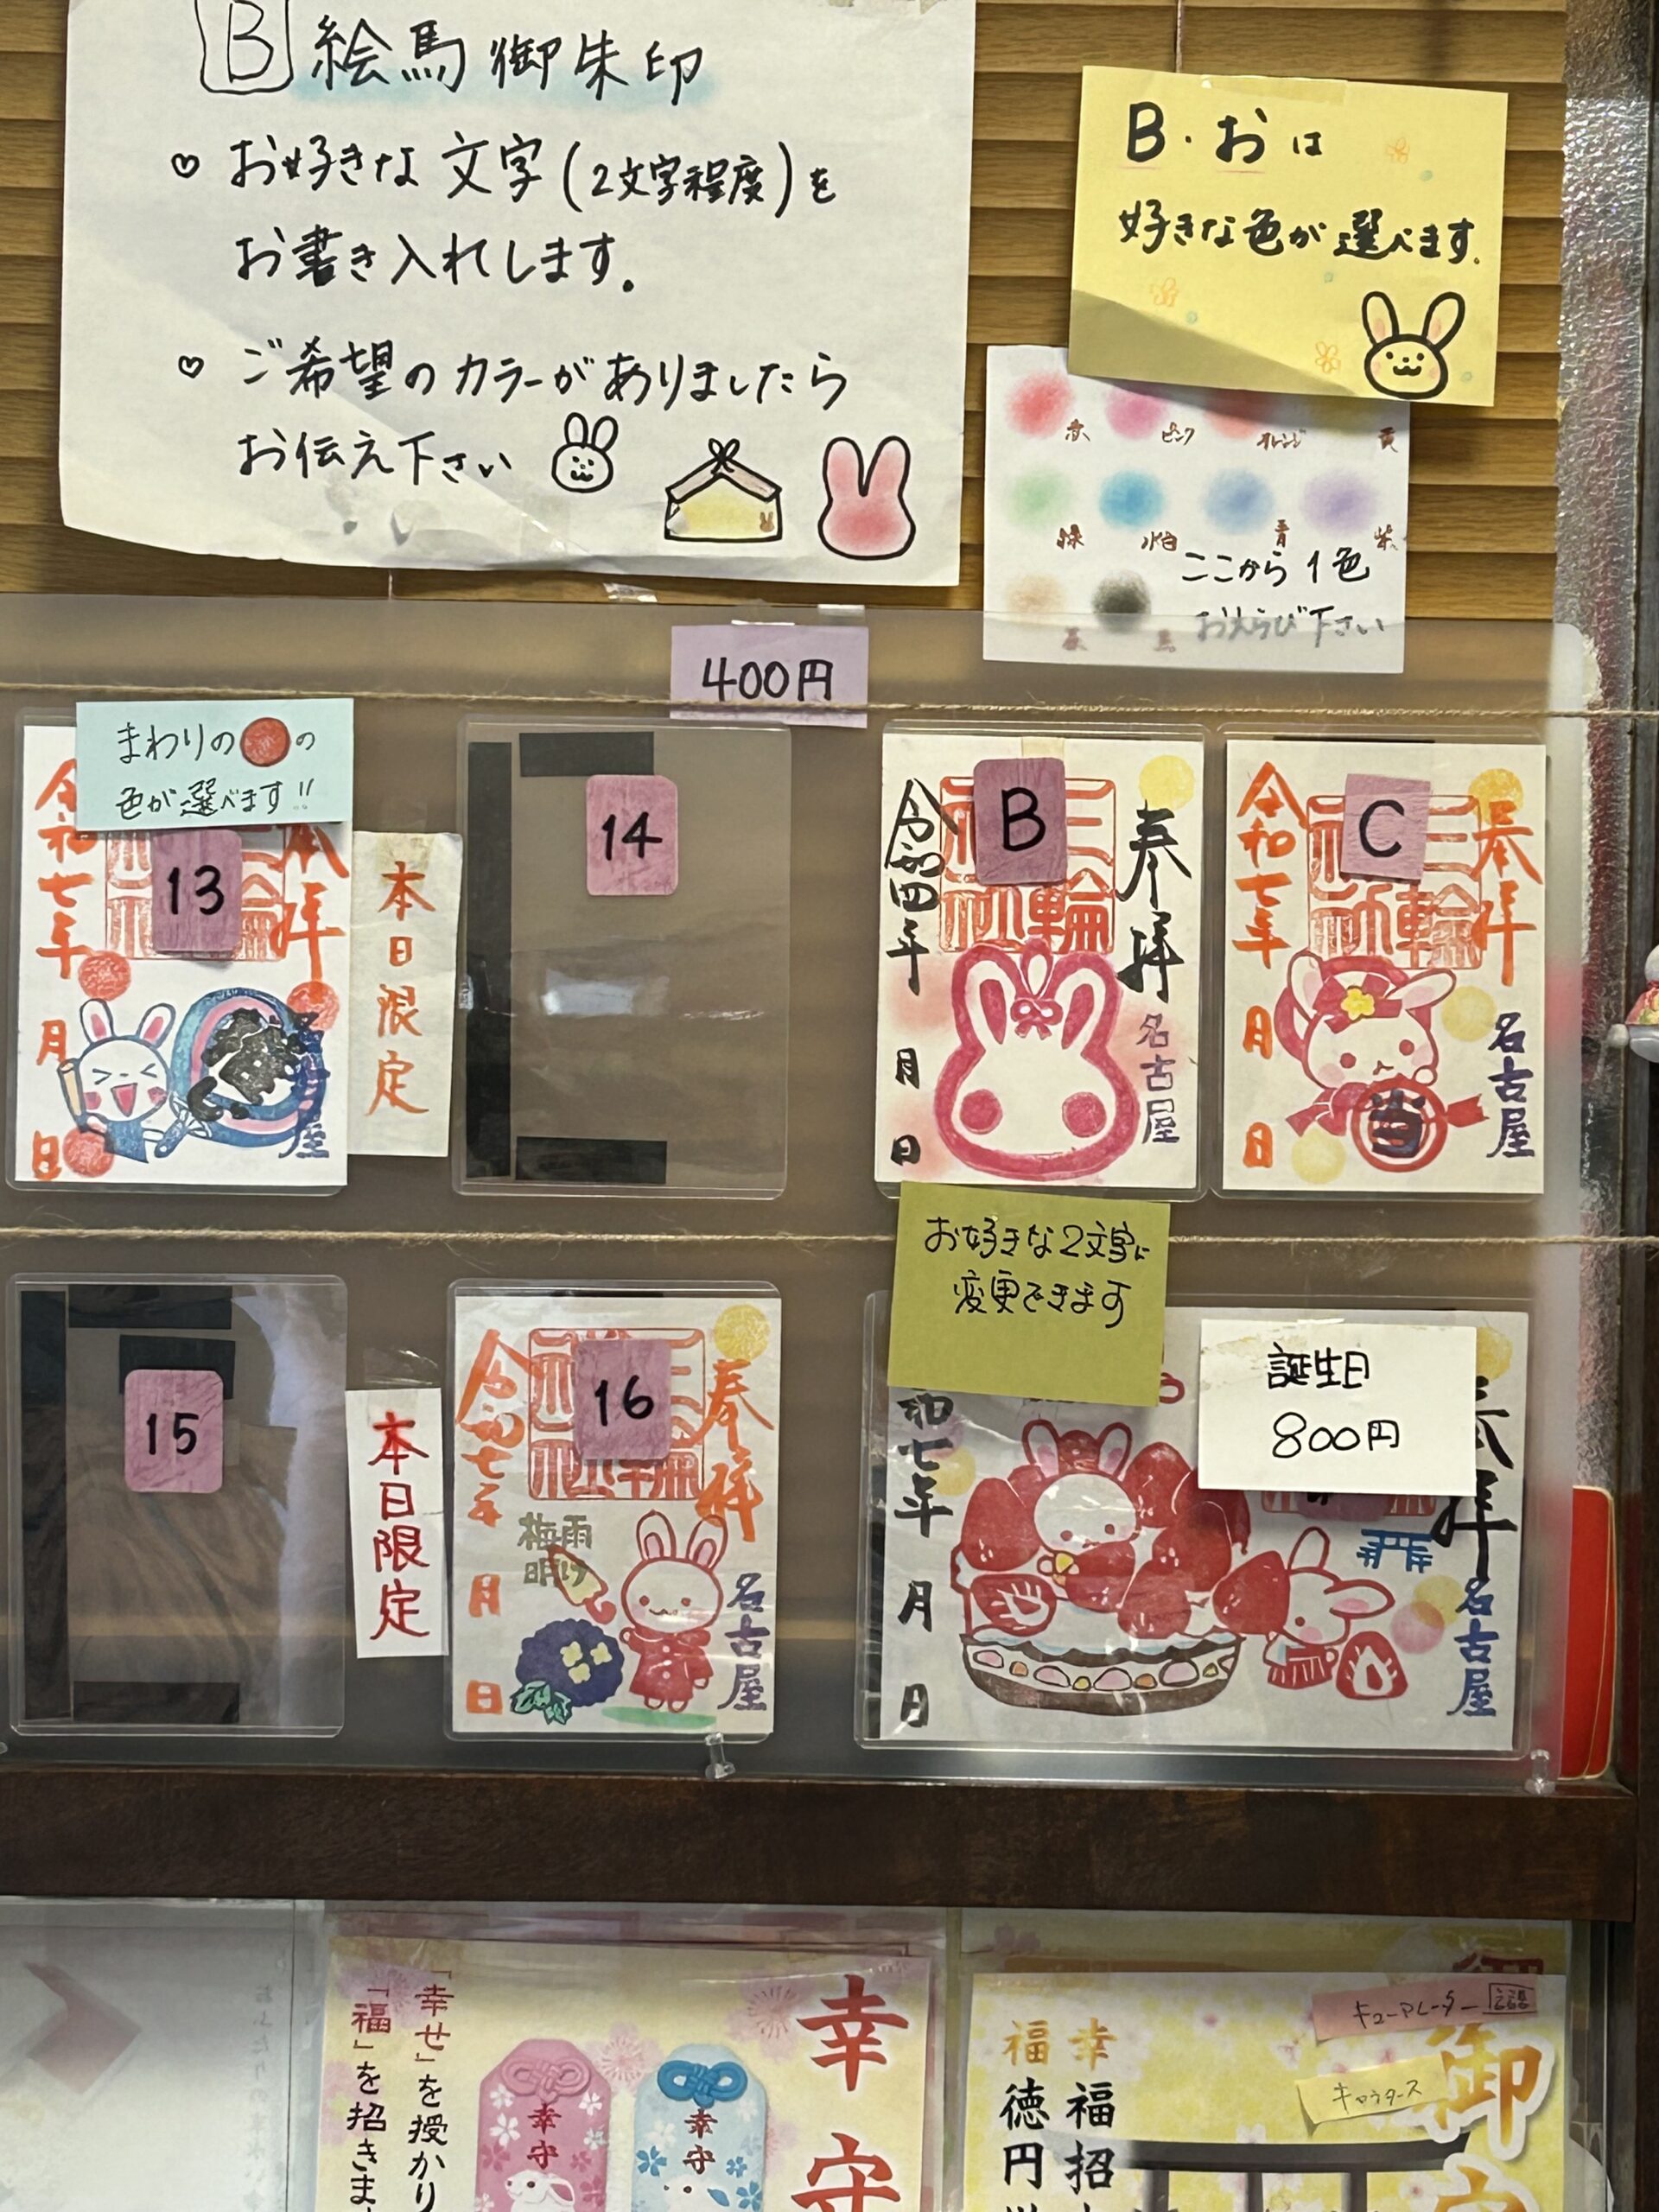 B 絵馬御朱印
♡ お好きな文字(2文字程度)を
お書き入れします.
♡ ご希望のカラーがありましたら
お伝え下さい
B・おは
好きな色が選べます.
赤 ピンク オレンジ 黄
緑 水色 青 紫
ここから1色
おえらび下さい
茶 黒
400円
まわりの●の
色が選べます!!
13
奉拝
令和七年
月
日
本日限定
14
B
奉拝
三輪神社
令和四年
月
日
名古屋
C
奉拝
三輪神社
令和七年
月
日
名古屋
当
お好きな2文字に
変更できます
15
本日限定
16
奉拝
令和七年
月
日
梅雨
明け
名古屋
誕生日
800円
奉拝
和七年
月
日
名古屋
幸守
「幸せ」を授かり
「福」を招きま
幸守
幸守
キューアレーター
御
幸福招
福徳円